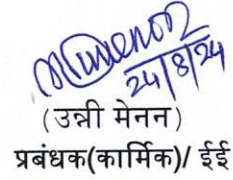 24/8/24
(उन्नी मेनन)
प्रबंधक(कार्मिक)/ ईई